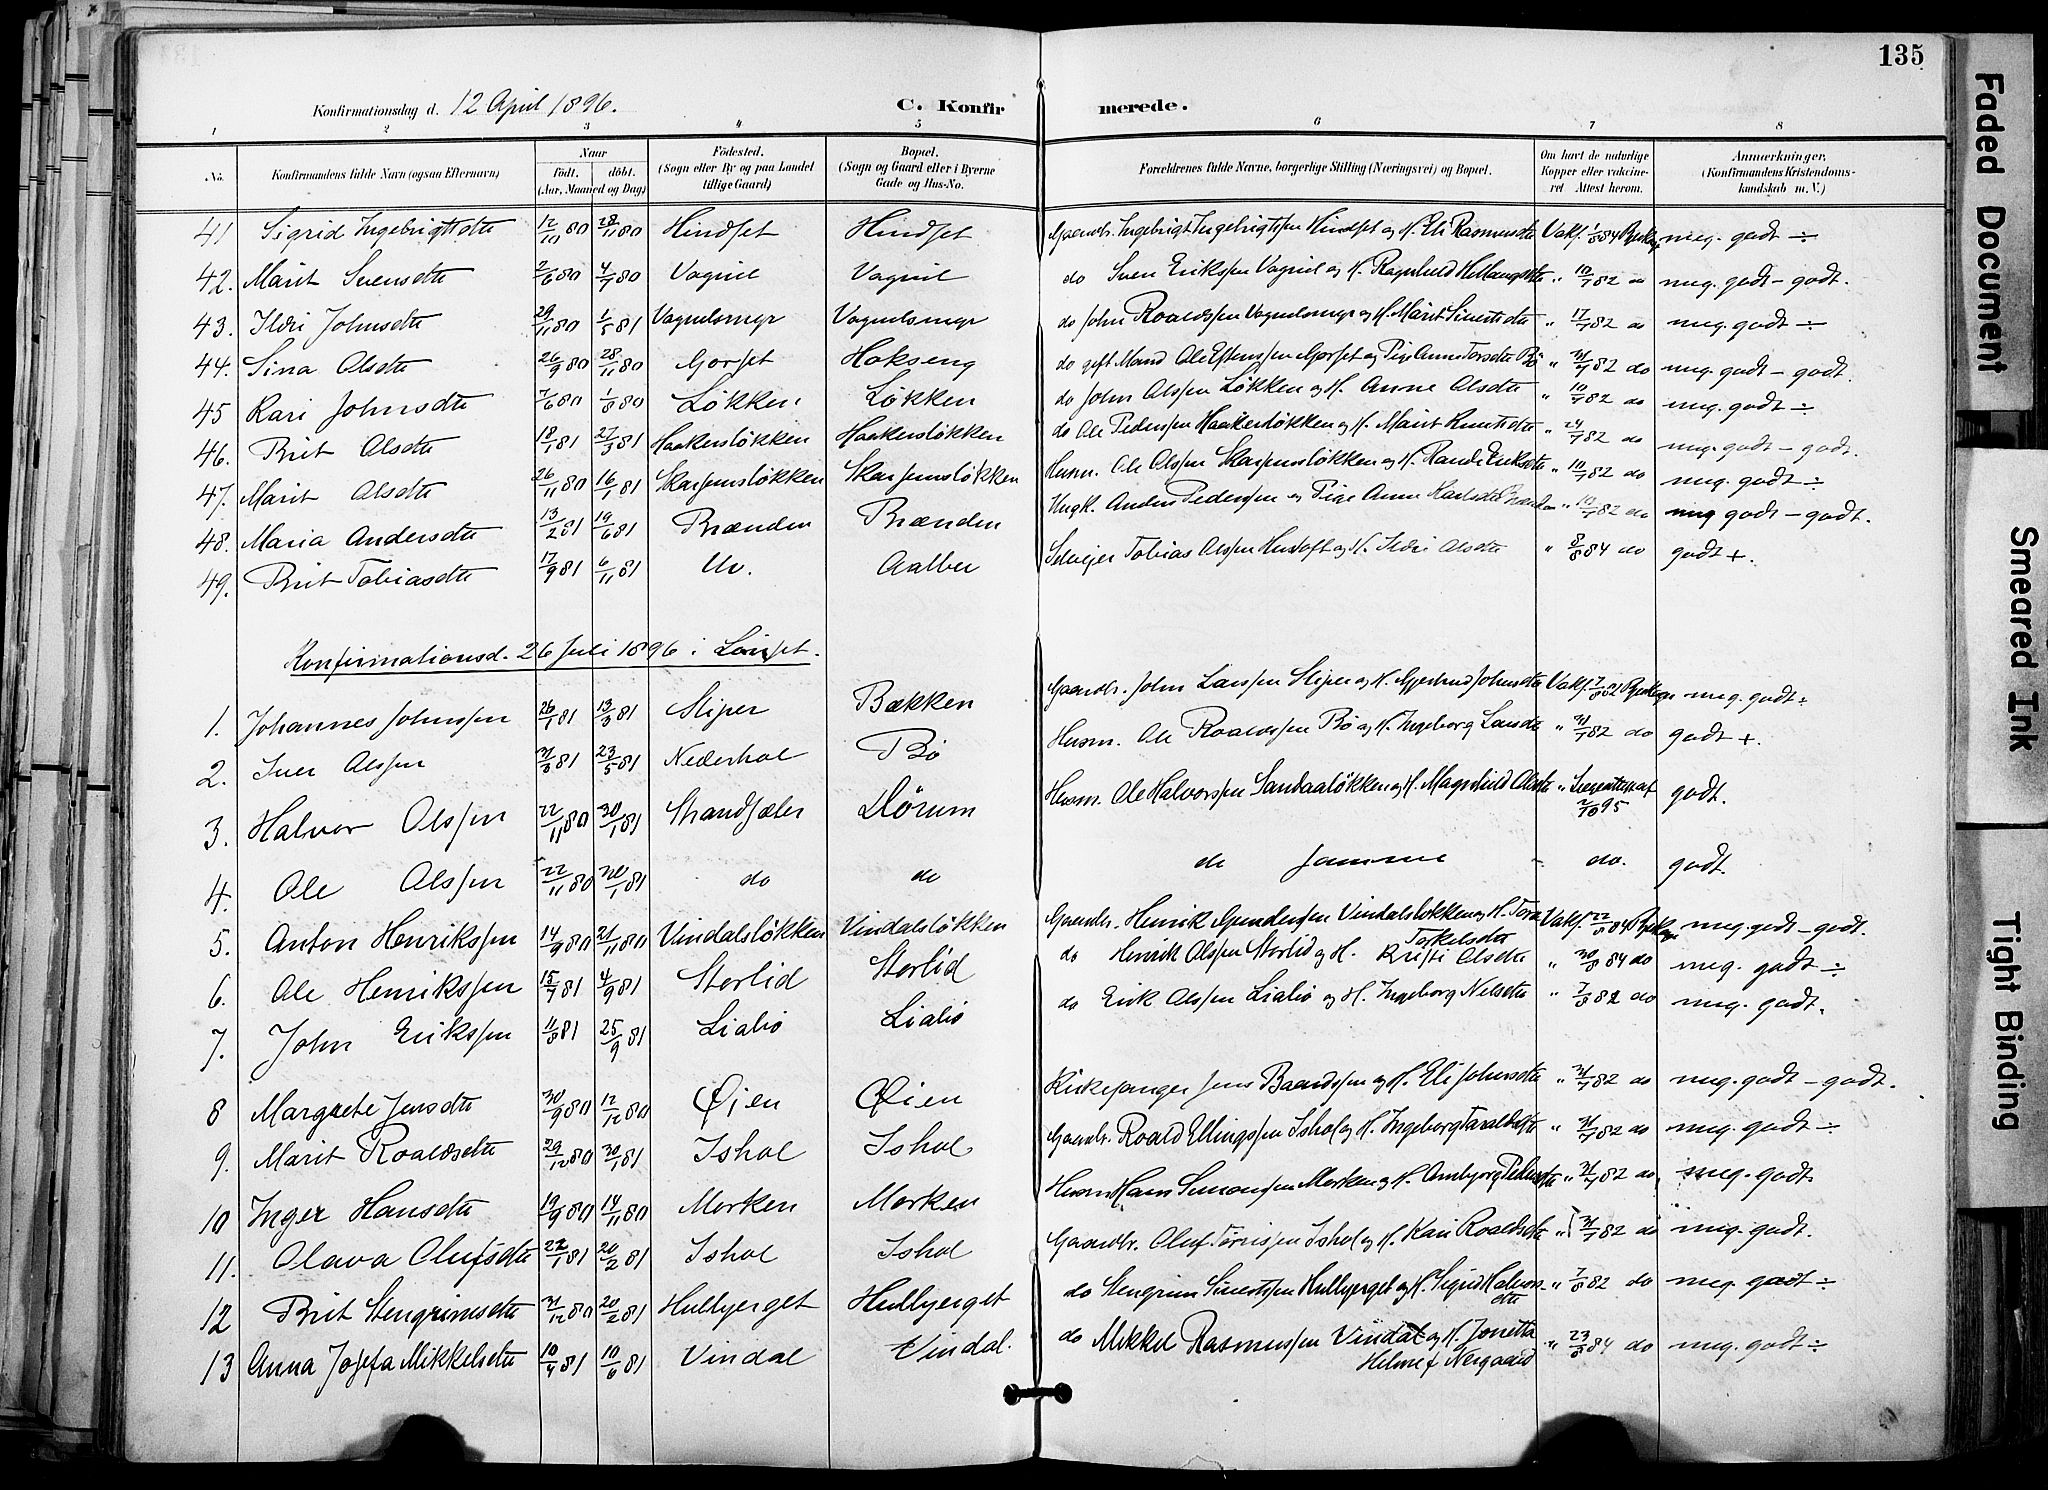 135
Konfirmationsdag d. 12 April 1896.
C. Konfirmerede.
1 2 3 4 5 6 7 8
No. Konfirmandens fulde Navn (ogsaa Efternavn) Naar födt. döbt. (Aar, Maaned og Dag) Födested. (Sogn eller By og paa Landet tillige Gaard) Bopæl. (Sogn og Gaard eller i Byerne Gade og Hus-No. Forældrenes fulde Navne, borgerlige Stilling (Næringsvei) og Bopæl. Om havt de naturlige Kopper eller vaccineret Attest herom. Anmærkninger. (Konfirmandens Kristendomskundskab m. V.)
41 Sigrid Ingebrigtsdtr 12/10 80 28/11 80 Hindset Hindset Gaardbr. Ingebrigt Ingebrigtssen Hindset og H. Eli Rasmusdtr Vakf. 1/8 84 meg. godt ÷
42. Marit Svensdtr 2/6 80 4/7 80 Vagnil Vagnil do Sven Erikssen Vagnil og H. Ragnhild " 10/7 82 do meg. godt - godt.
43. Ildri Johnsdtr 29/11 80 1/5 81 Vagnilsmyr Vagnilsmyr do John Roaldssen Vagnilsmyr og H. Marit Sivertsdtr " 17/7 82 do meg. godt ÷
44. Sina Olsdtr 26/9 80 28/11 80 Gorset Hokseng do gift Mand Ole Estenssen Gorset og Pige Anne Toresdtr Bö " 31/7 82 do meg. godt - godt.
45 Kari Johnsdtr 7/6 80 1/8 80 Lökken Lökken do John Olssen Lökken og H. Anne Olsdtr " 10/7 82 do meg. godt ÷
46. Brit Olsdtr 18/1 81 27/3 81 Haakerslökken Haakerslökken do Ole Pederssen Haakerslökken og H. Marit Knutsdtr " 24/7 82 do meg. godt - godt.
47. Marit Olsdtr 26/11 80 16/1 81 Skarsemslökken Skarsemslökken Husm. Ole Olssen Skarsemslökken og H. Randi Eriksdtr " 10/7 82 do meg. godt ÷
48. Maria Andersdtr 13/2 81 19/6 81 Brænden Brænden Ungk. Anders Pederssen og Pige Anne Brænden " 10/7 82 do meg godt - godt.
49. Brit Tobiasdtr 17/9 81 6/11 81 Ur. Aalbu Selvejer Tobias Olssen og H. Ildri Olsdtr " 8/8 84 do godt +.
Konfirmationsd. 26 Juli 1896 i Lönset.
1. Johannes Johnssen 26/1 81 13/3 81 Sliper Bækken Gaardbr. John Larssen Sliper og H. Gjertrud Johnsdtr Vakf. 7/8 82 meg. godt ÷
2. Iver Olssen 31/3 81 23/5 81 Nederhol Bö Husm. Ole Roaldssen Bö og H. Ingeborg Larsdtr " 31/7 82 do godt +.
3. Halvor Olssen 22/11 80 30/1 81 Strandsæter Dörum Husm. Ole Halvorssen Sandaalökken og H. Magnhild Olsdtr " 2/10 95 godt.
4. Ole Olssen 22/11 80 30/1 81 do do de samme " do. godt.
5. Anton Henrikssen 14/9 80 21/11 80 Vindalslökken Vindalslökken Gaardbr. Henrik Gunderssen Vindalslökken og H. Tore Torkelsdtr Vakf. 22/8 84 meg. godt - godt.
6. Ole Henrikssen 15/7 81 4/9 81 Storlid Storlid do Henrik Olssen Storlid og H. Kristi Olsdtr " 30/8 84 do meg. godt ÷
7. John Erikssen 11/8 81 25/9 81 Lialiö Lialiö do Erik Olssen Lialiö og H. Ingeborg Nilsdtr " 7/8 82 do meg. godt.
8 Margrete Jensdtr 30/9 80 12/12 80 Öien Öien Kirkesanger Jens Baardssen og H. Eli Johnsdtr " 31/7 82 do meg. godt - godt.
9. Marit Roaldsdtr 29/12 80 30/1 81 Ishol Ishol Gaardbr. Roald Ellingssen Ishol og H. Ingeborg Taraldsdtr " 31/7 82 do meg. godt ÷
10 Inger Hansdtr 19/9 80 14/11 80 Morken Morken Husm Hans Simonssen Morken og H. Ambjorg Pedersdtr " 31/7 82 do meg. godt.
11. Olava Olufsdtr 22/1 81 20/2 81 Ishol Ishol Gaardbr. Oluf Törrissen Ishol og H. Kari Roaldsdtr " 31/7 82 do meg. godt.
12 Brit Stengrimsdtr 31/12 80 20/2 81 Hullbjerget Hullbjerget do Stengrim Sivertssen Hullbjerget og H. Sigrid Halvorsdtr " 7/8 82 do meg. godt ÷
13 Anna Josefa Mikkelsdtr 10/4 81 10/6 81 Vindal Vindal. do Mikkel Rasmussen Vindal og H. Jonetta Helme f. Nergaard " 23/8 84 do meg. godt ÷
Faded Document
Smeared Ink
Tight Binding